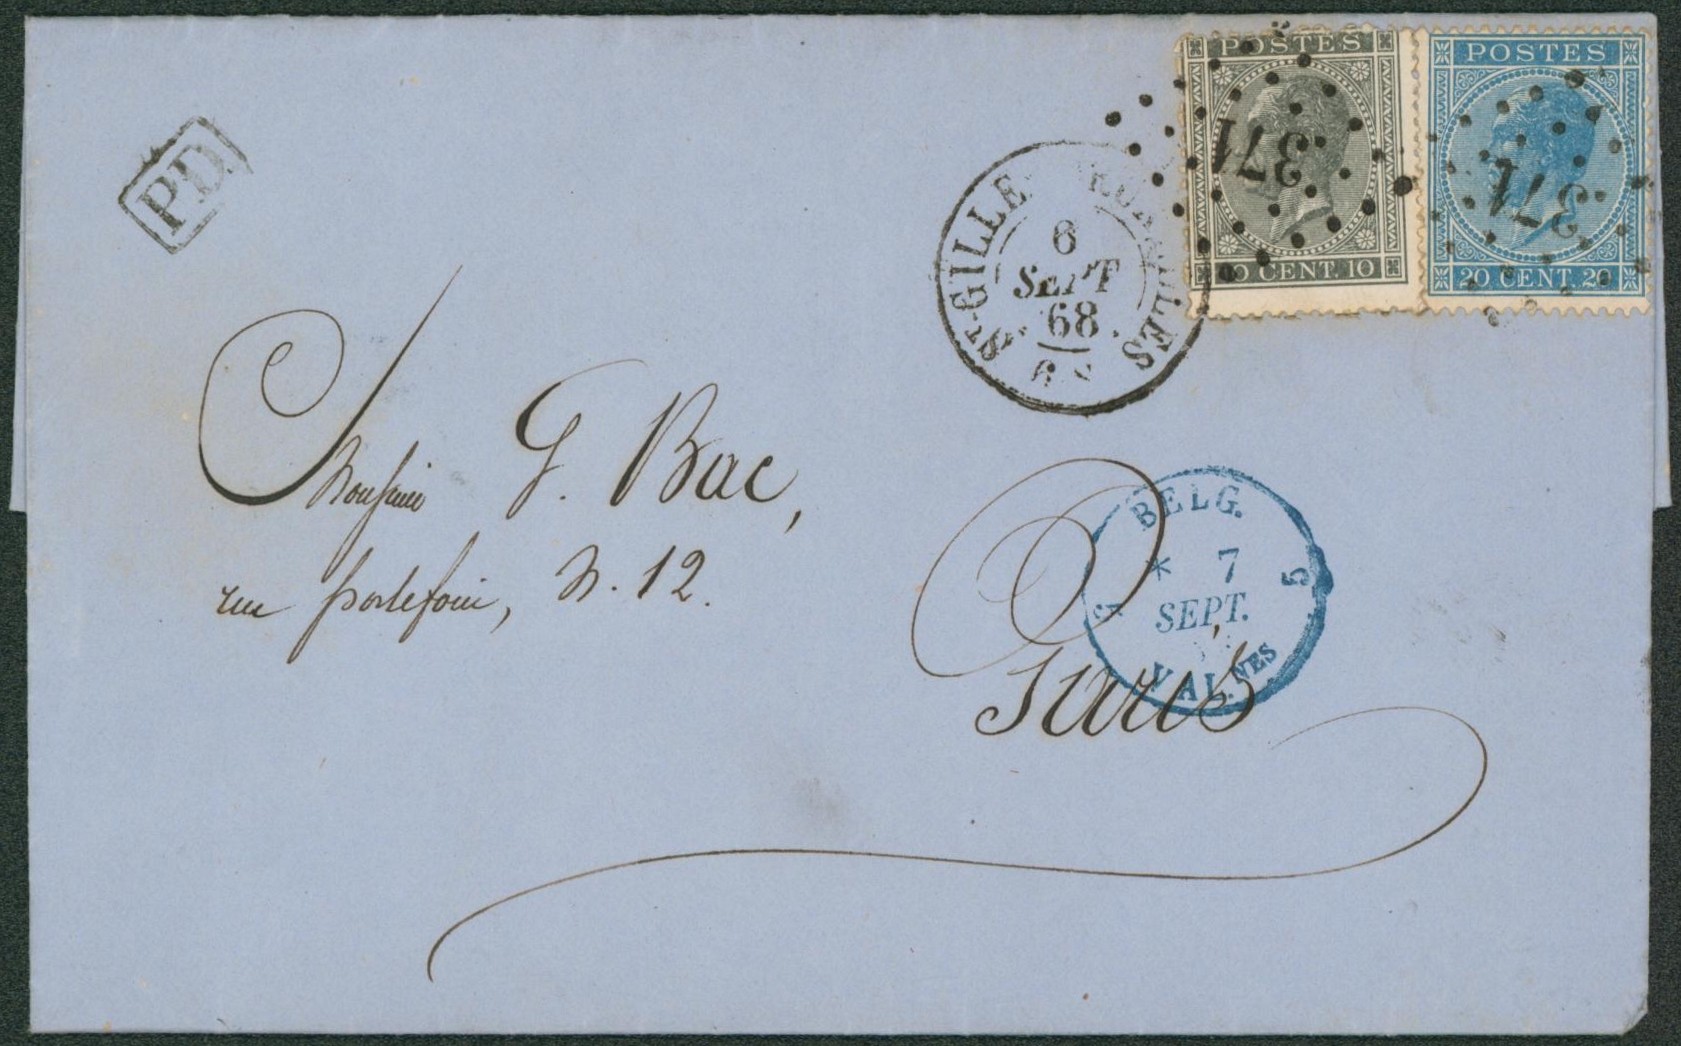 P.D.
POSTES
371
10 CENT. 10
POSTES
371
20 CENT. 20
ST-GILLES BRUXELLES
6
SEPT
68
6 S
Monsieur G. Bac,
rue portefoin, N. 12.
Paris
BELG.
* 7
SEPT.
5
VAL.NES